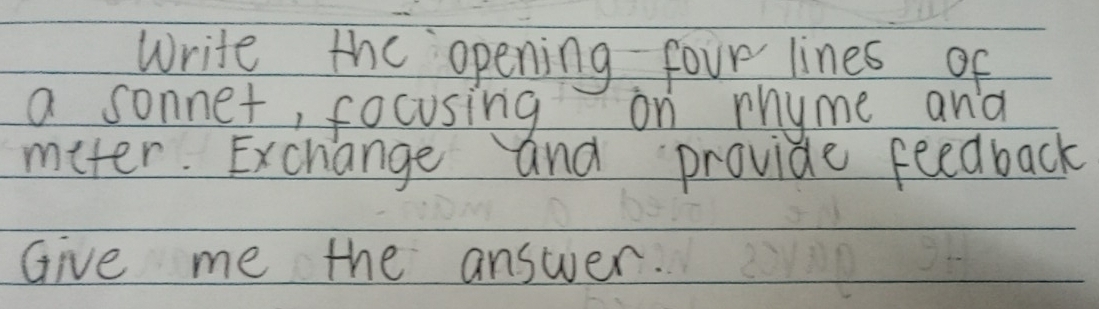 Write the opening four lines of
a sonnet, focusing on rhyme and
meter. Exchange and provide feedback
Give me the answer.